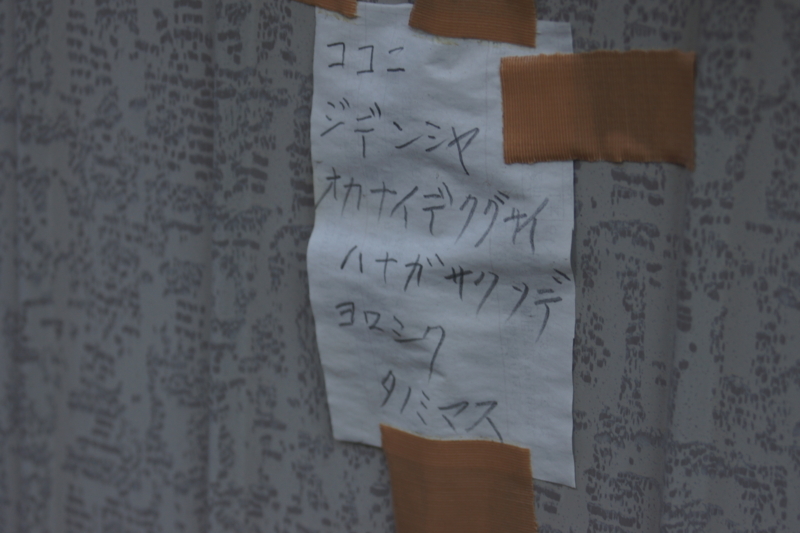 ココニ
ジデンシヤ
オカナイデクグサイ
ハナガサクノデ
ヨロシク
タノミマス